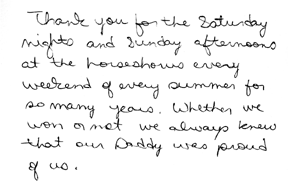 Thank you for the Saturday
nights and Sunday afternoons
at the horseshows every
weekend of every summer for
so many years. Whether we
won or not we always knew
that our Daddy was proud
of us.